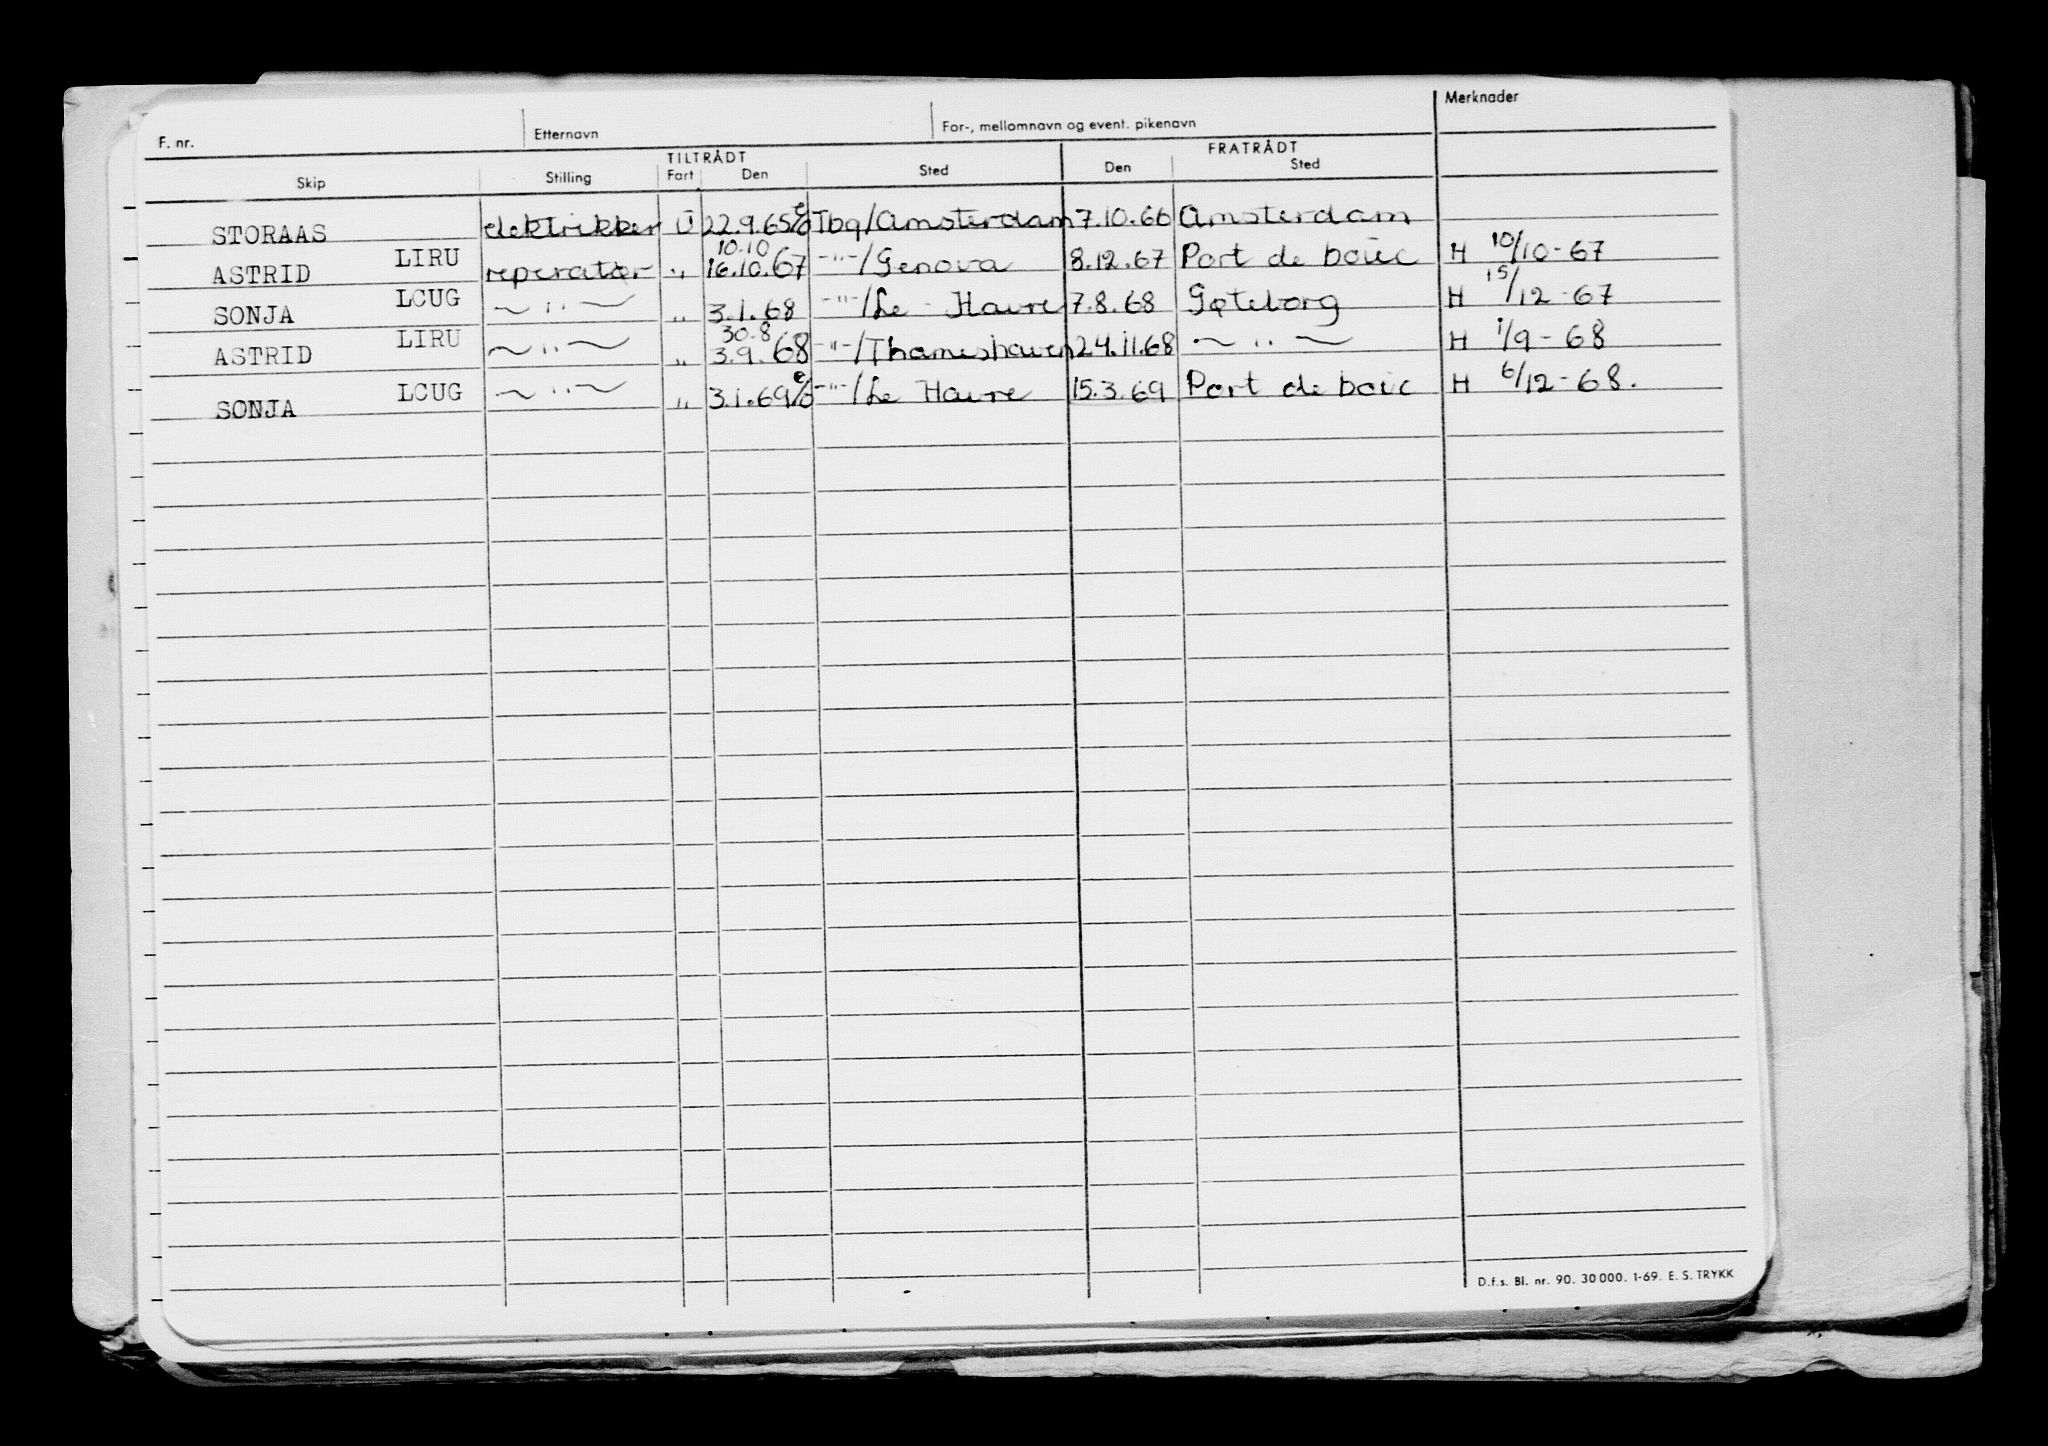 F. nr. Etternavn For-, mellomnavn og event. pikenavn Merknader
TILTRÅDT FRATRÅDT
Skip Stilling Fart Den Sted Den Sted
STORAAS elektrikker U 22.9.65 Tbg/Amsterdam 7.10.66 Amsterdam
10.10
ASTRID LIRU reperatør " 16.10.67 -"-/Genova 8.12.67 Port de bouc H 10/10-67
SONJA LCUG ~ " ~ " 3.1.68 -"-/Le-Havre 7.8.68 Gøteborg H 15/12-67
30.8
ASTRID LIRU ~ " ~ " 3.9.68 -"-/Thameshaven 24.11.68 ~ " ~ H 1/9-68
SONJA LCUG ~ " ~ " 3.1.69 -"-/Le Havre 15.3.69 Port de bouc H 6/12-68.
D.f.s. Bl. nr. 90. 30 000. 1-69. E. S. TRYKK